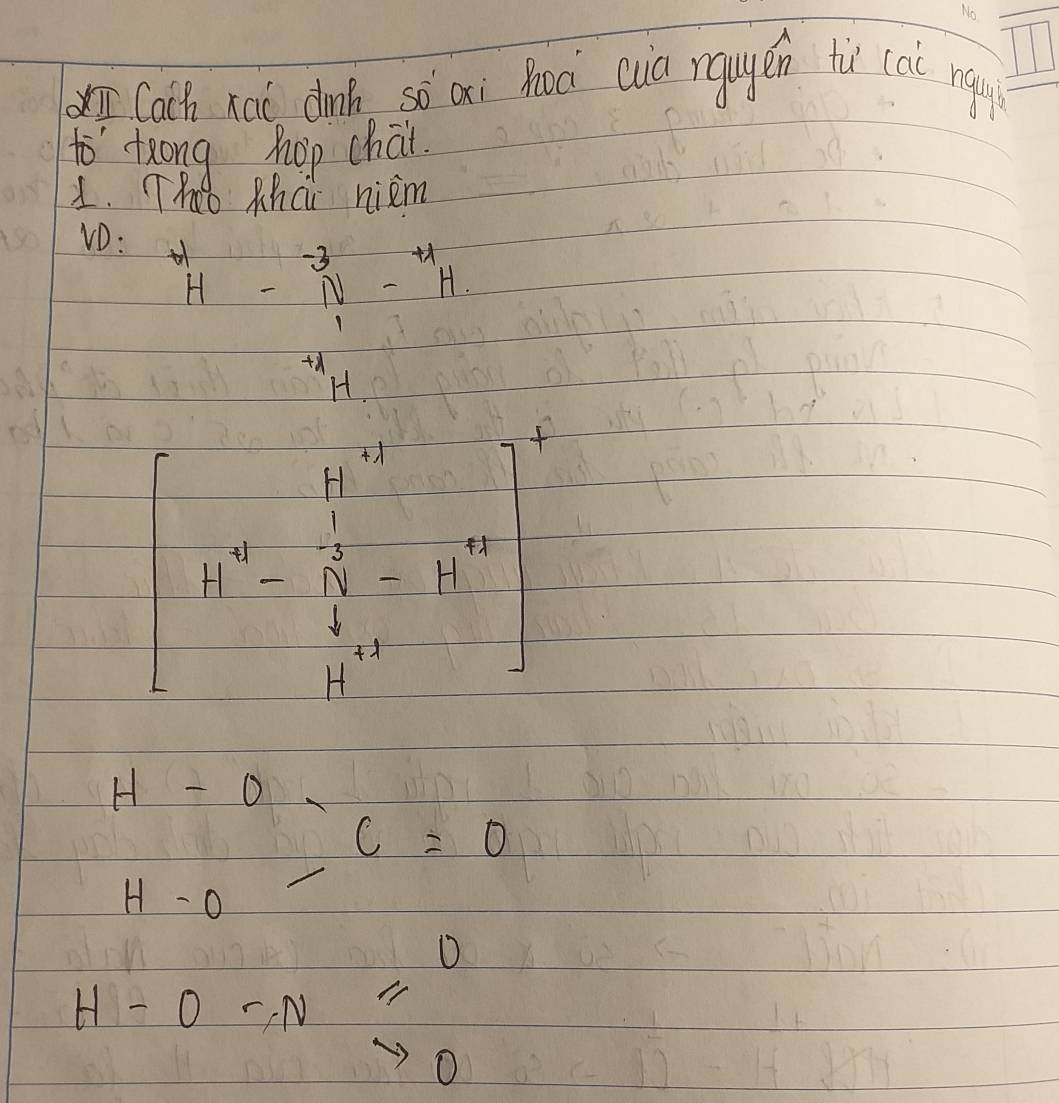 No.
II. Cách xác định số oxi hoá của nguyên tử các nguyên
tố trong hợp chất.
1. Theo khái niệm
VD:
+1 -3 +1
H - N - H.
+1
H
[ ]+
H+1
-3
H+1 - N - H+1
↓
H+1
H - O
C = O
H - O
O
H - O - N
→ O